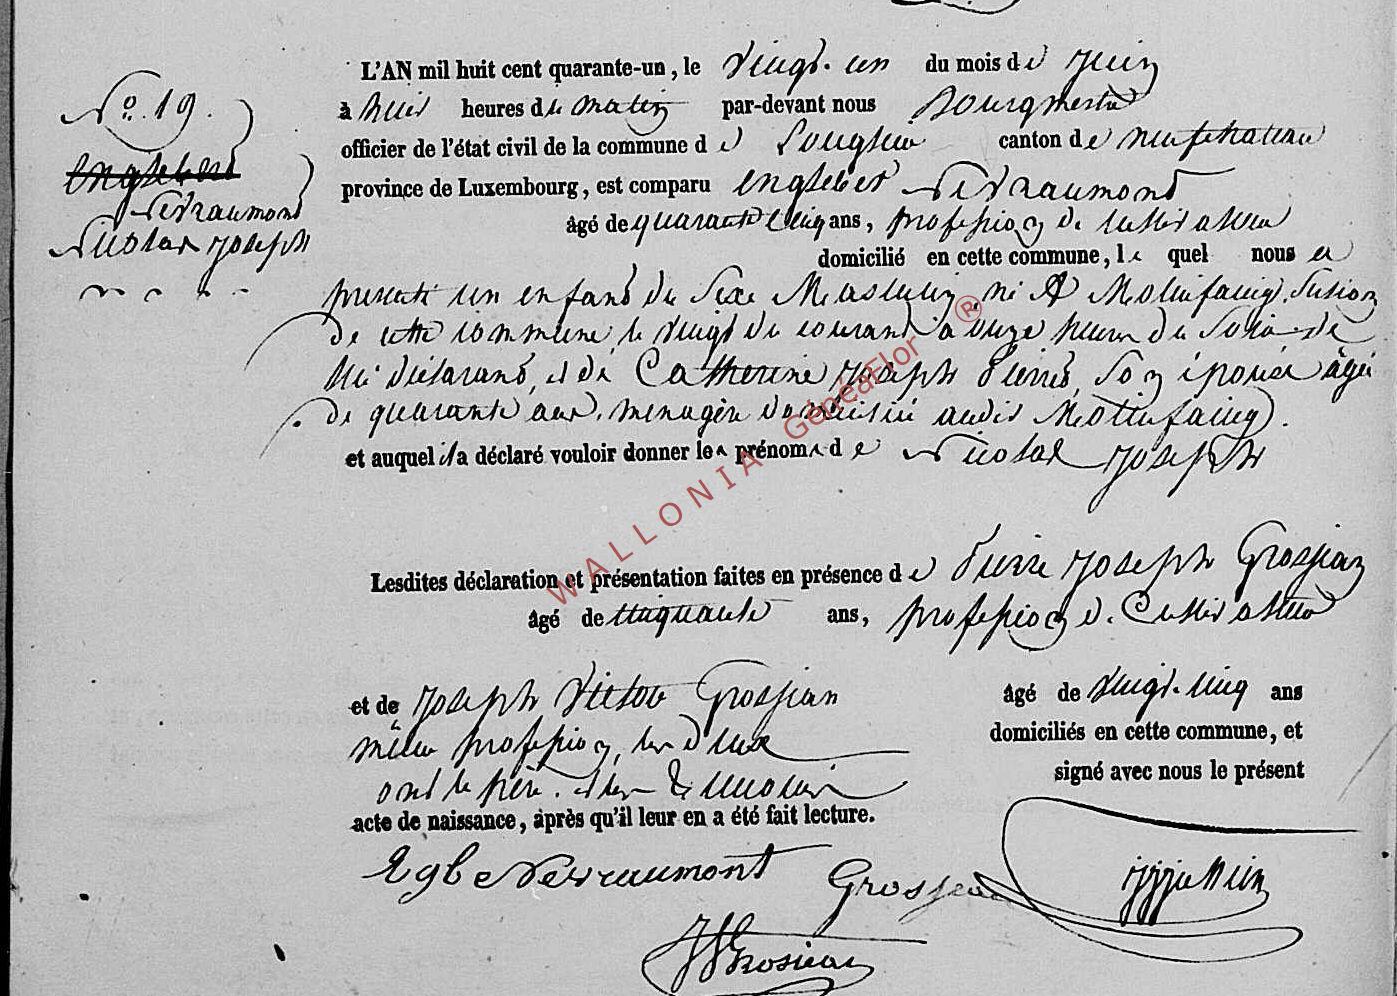 L'AN mil huit cent quarante-un, le vingt-un du mois de juin
N.° 19.
à huit heures du matin par-devant nous Bourgmestre
officier de l'état civil de la commune de Longlier canton de neufchateau
Englebert
province de Luxembourg, est comparu Englebert Nevraumont
Nevraumont
âgé de quarante cinq ans, profession de cultivateur
Nicolas Joseph
domicilié en cette commune, le quel nous a
présenté un enfant du sexe Masculin, né à Molinfaing, Section
de cette commune, le vingt du courant à onze heures du soir de
lui déclarant, et de Catherine Joseph Pierret, son épouse âgée
de quarante ans, menagère domiciliée audit Molinfaing.
et auquel il a déclaré vouloir donner les prénoms de Nicolas Joseph
Lesdites déclaration et présentation faites en présence de Pierre Joseph Grosjean
âgé de cinquante ans, profession de Cultivateur
et de Joseph Victor Grosjean âgé de vingt-cinq ans
même profession, les deux domiciliés en cette commune, et
ont le père et les témoins signé avec nous le présent
acte de naissance, après qu'il leur en a été fait lecture.
Egle Nevraumont Grosjean
Grosjean
WALLONIA GénéaFlor ®